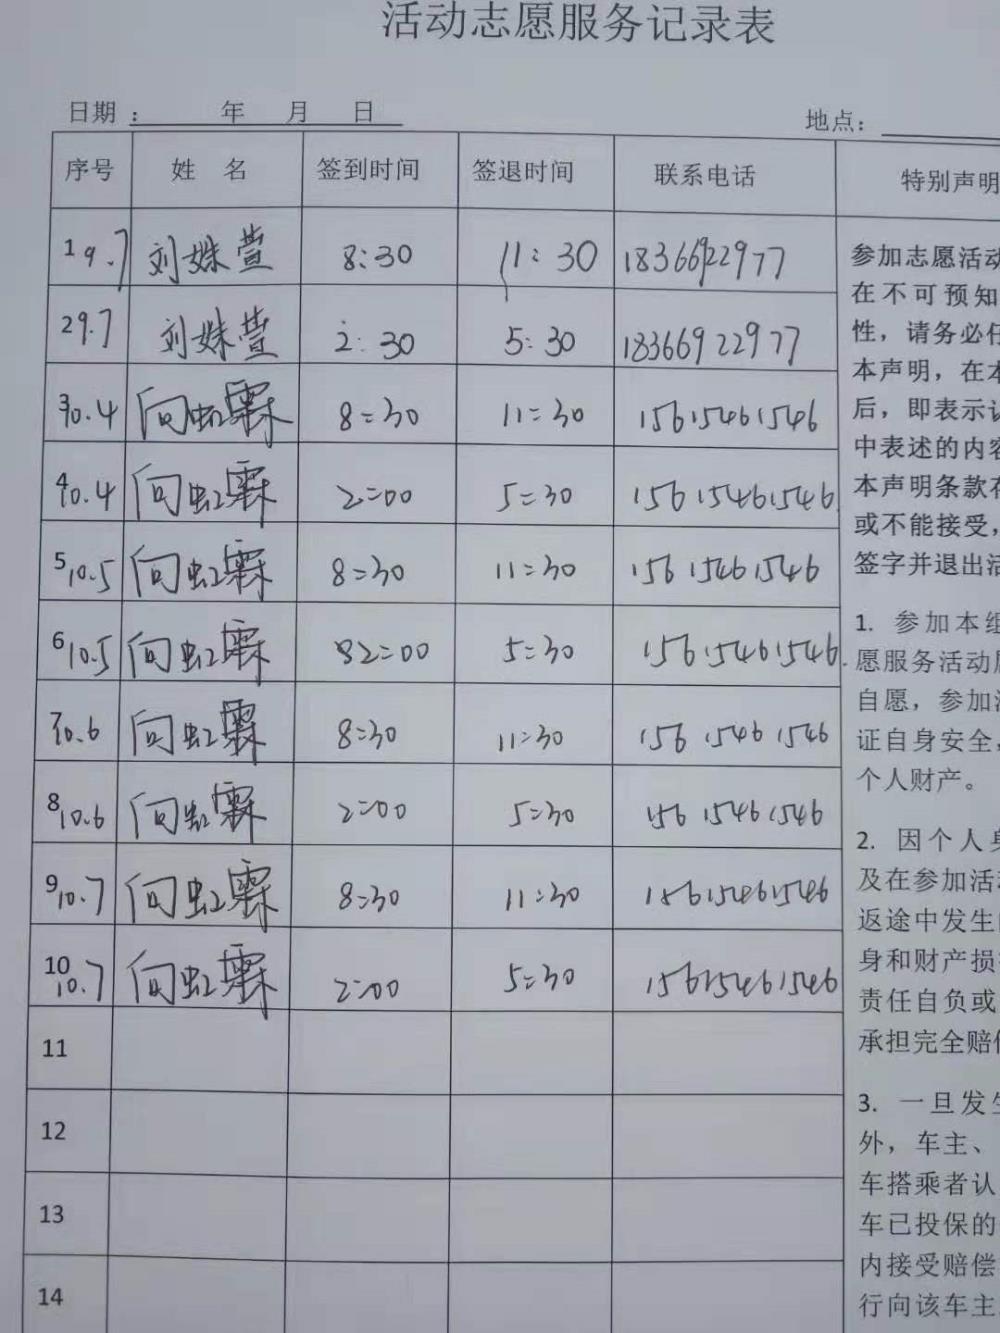 活动志愿服务记录表
日期：　　年　月　日　　地点：
序号 姓 名 签到时间 签退时间 联系电话 特别声明
1 9.7 刘姝萱 8:30 11:30 18366922977
2 9.7 刘姝萱 2:30 5:30 18366922977
3 10.4 向虹霖 8:30 11:30 15615461546
4 10.4 向虹霖 2:00 5:30 15615461546
5 10.5 向虹霖 8:30 11:30 15615461546
6 10.5 向虹霖 2:00 5:30 15615461546
7 10.6 向虹霖 8:30 11:30 15615461546
8 10.6 向虹霖 2:00 5:30 15615461546
9 10.7 向虹霖 8:30 11:30 15615461546
10 10.7 向虹霖 2:00 5:30 15615461546
11
12
13
14
参加志愿活动
在不可预知
性，请务必
本声明，在本
后，即表示
中表述的内容
本声明条款在
或不能接受，
签字并退出活
1. 参加本组
愿服务活动
自愿，参加
证自身安全，
个人财产。
2. 因个人身
及在参加活动
返途中发生
身和财产损
责任自负或
承担完全赔偿
3. 一旦发生
外，车主、
车搭乘者认
车已投保的
内接受赔偿
行向该车主